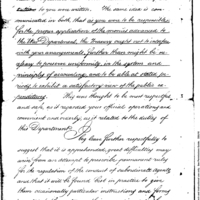 to you were written. The same idea is com-
municated in both that as you were to be responsible
for the proper application of the monies advanced to
the War Department, the Treasury ought not to interfere
with your arrangements further than might be ne-
cessary to preserve uniformity in the system and
principles of accounting, and to be able at stated per-
iods to exhibit a satisfactory view of the public ex-
penditures. This was thought to be most respectful
and safe, as it regarded your official operations and
convenient and as it related to the duties of
this Department.
I beg leave further respectfully to
suggest that it is apprehended, great difficulties may
arise from an attempt to prescribe permanent rules
for the regulation of the conduct of subordinate agents
and that it will be found, that in practice to give
them occasionally particular instructions and forms